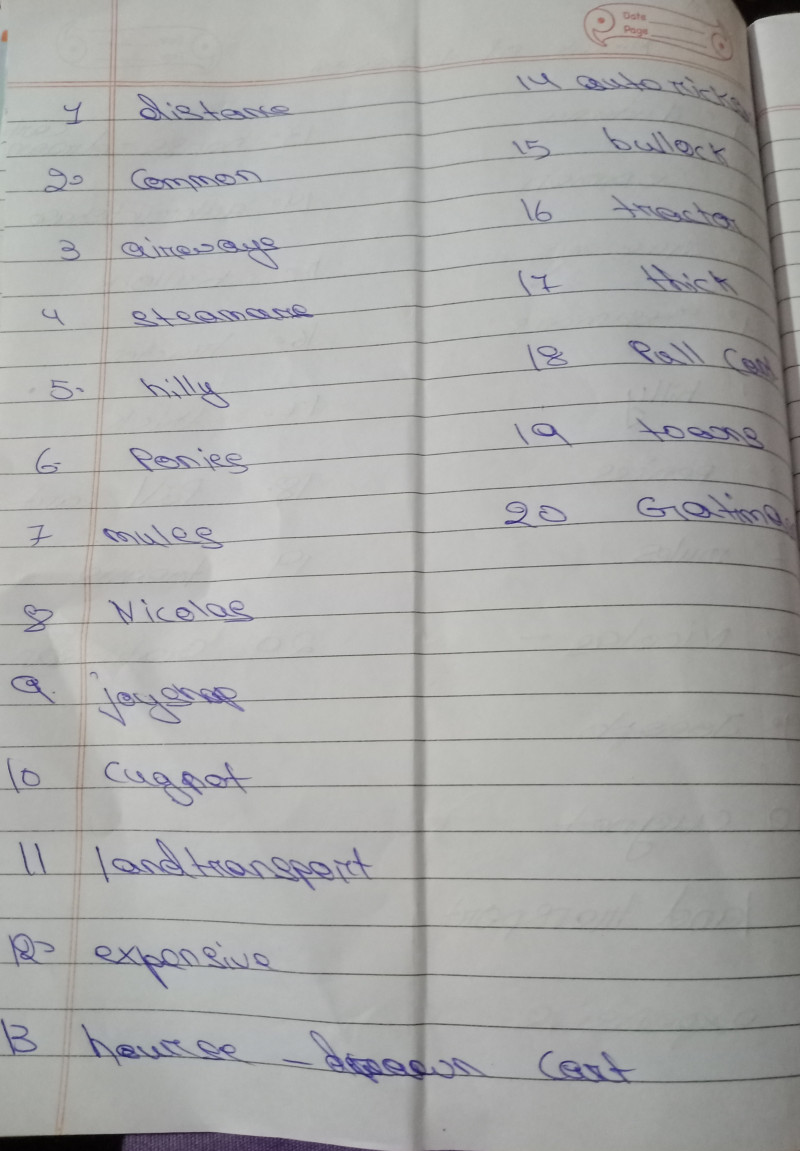 Date
Page
1 distance
2 Common
3 airways
4 steamare
5. hilly
6 Ponies
7 mules
8 Nicolas
9. joyshap
10 Cugnot
11 landtransport
12 expensive
13 hourse - drawn Cart
14 auto ricks
15 bullock
16 tractor
17 thick
18 Pall Cart
19 toans
20 Gatima